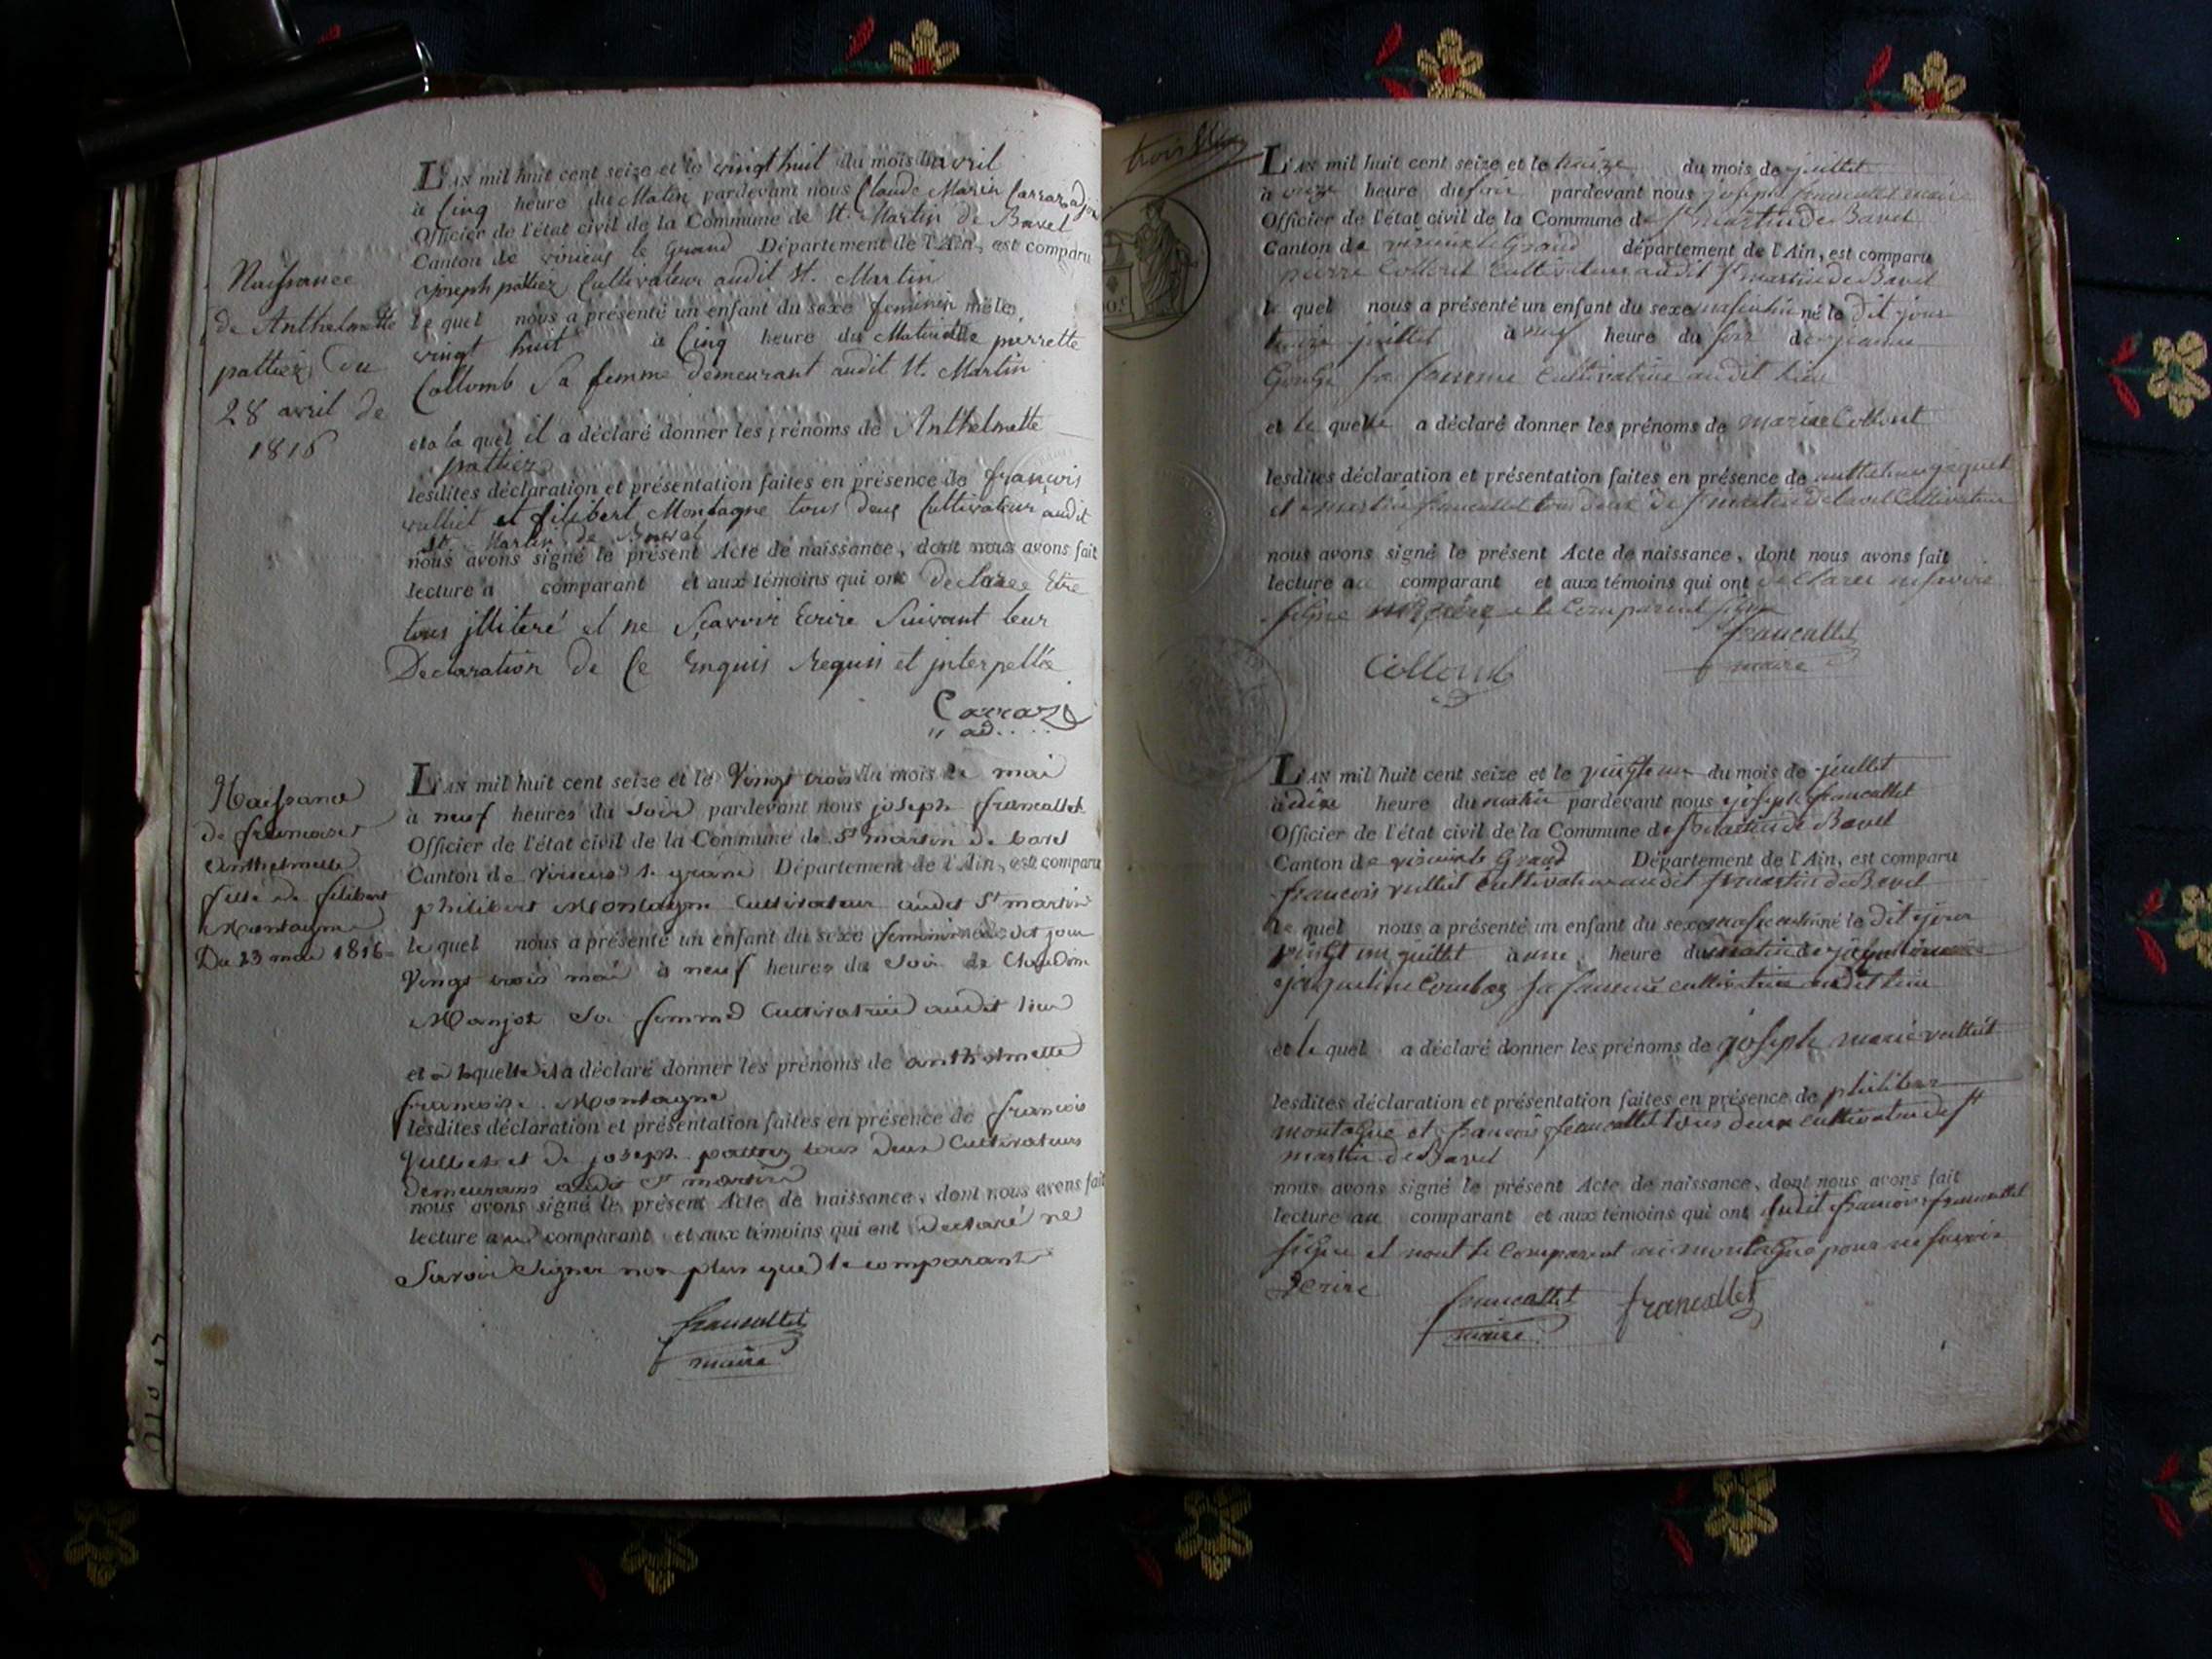 Naissance
de Anthelmette
pattiez Du
28 avril de
1816
L'AN mil huit cent seize et le vingt huit du mois d'avril
à Cinq heure du Matin pardevant nous Claude Marin Carraz adj
Officier de l'état civil de la Commune de St. Martin de Bavel
Canton de virieux le Grand Département de l'Ain, est comparu
joseph pattiez Cultivateur audit St. Martin
le quel nous a présenté un enfant du sexe feminin né le
vingt huit à Cinq heure du Matin de pierrette
Collomb Sa femme demeurant audit St. Martin
et a la quel il a déclaré donner les prénoms de Anthelmette
pattiez
lesdites déclaration et présentation faites en présence de françois
vulliet et filibert Montagne tous deux Cultivateur audit
St. Martin de Bavel
nous avons signé le présent Acte de naissance, dont nous avons fait
lecture a comparant et aux témoins qui ont declaree Etre
tous jlliteré et ne Sçavoir Ecrire Suivant leur
Declaration de Ce Enquis Requis et jnterpellée
Carraz
ad.
Naissance
de francoise
Anthelmette
fille de filibert
Montagne
Du 23 mai 1816
L'AN mil huit cent seize et le Vingt trois du mois de mai
à neuf heures du soir pardevant nous joseph francallet
Officier de l'état civil de la Commune de St martin de bavel
Canton de Virieux le grand Département de l'Ain, est comparu
philibert Montagne Cultivateur audit St martin
le quel nous a présenté un enfant du sexe feminin né le dit jour
Vingt trois mai à neuf heures du soir de Claudine
Manjot sa femme Cultivatrice audit lieu
et a laquelle il a déclaré donner les prénoms de anthelmette
francoise Montagne
lesdites déclaration et présentation faites en présence de francois
Vulliet et de joseph pattiez tous deux Cultivateurs
demeurans audit St martin
nous avons signé le présent Acte de naissance, dont nous avons fait
lecture au comparant et aux témoins qui ont declaré ne
savoir signer non plus que le comparant
francallet
maire
trois
L'AN mil huit cent seize et le treize du mois de juillet
à onze heure du soir pardevant nous joseph francallet maire
Officier de l'état civil de la Commune de St martin de Bavel
Canton de virieux le Grand département de l'Ain, est comparu
pierre Collont Cultivateur audit St martin de Bavel
le quel nous a présenté un enfant du sexe masculin né le dit jour
treize juillet à neuf heure du soir de jeanne
sa femme Cultivatrice audit lieu
et le quelle a déclaré donner les prénoms de marie Collont
lesdites déclaration et présentation faites en présence de
et martin francallet tous deux de St martin de bavel Cultivateur
nous avons signé le présent Acte de naissance, dont nous avons fait
lecture au comparant et aux témoins qui ont declarer ne savoir
signe le Comparent signe
francallet
maire
L'AN mil huit cent seize et le vingt un du mois de juillet
à dixe heure du matin pardevant nous joseph francallet
Officier de l'état civil de la Commune de St martin de Bavel
Canton de virieux le Grand Département de l'Ain, est comparu
francois vulliet Cultivateur audit St martin de Bavel
le quel nous a présenté un enfant du sexe masculin né le dit jour
vingt un juillet à une heure du matin de
jaqueline Combaz sa femme cultivatrice audit lieu
et le quel a déclaré donner les prénoms de joseph marie vulliet
lesdites déclaration et présentation faites en présence de philibert
montagne et francois francallet tous deux cultivateur de St
martin de Bavel
nous avons signé le présent Acte de naissance, dont nous avons fait
lecture au comparant et aux témoins qui ont ledit francois francallet
signe et nont le Comparent ni montagne pour ne savoir
Ecrire
francallet francallet
maire